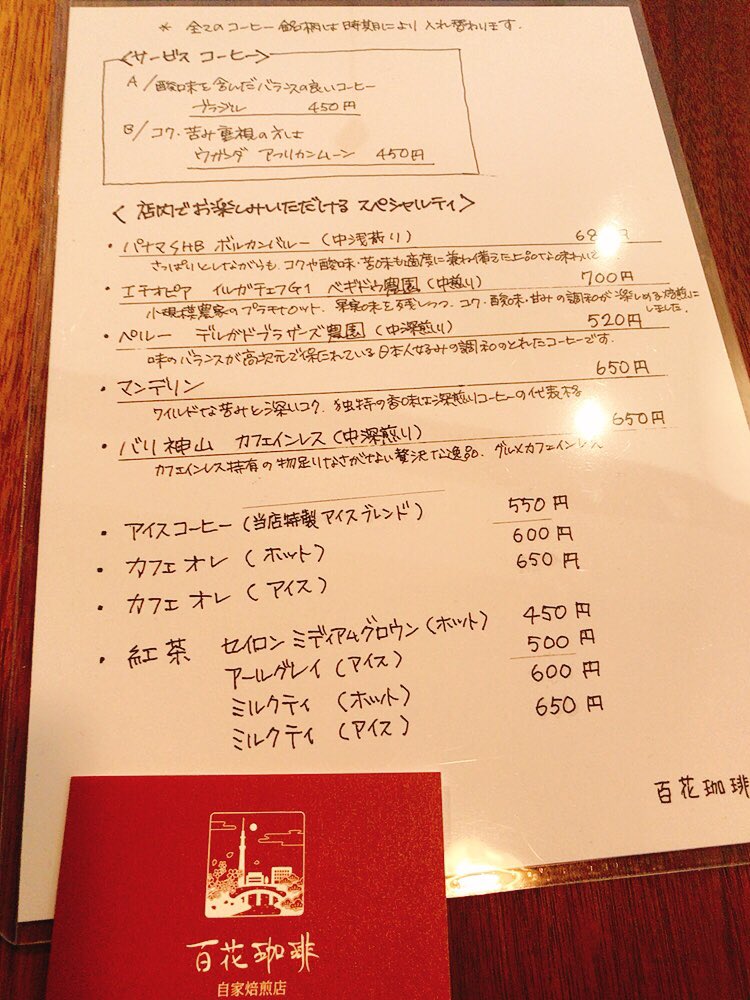 * 全てのコーヒー銘柄は時期により入れ替わります.
<サービス コーヒー>
A/酸味を含んだバランスの良いコーヒー
ブラジル 450円
B/コク・苦み重視の方は
ウガンダ アフリカンムーン 450円
<店内でお楽しみいただける スペシャルティ>
・パナマSHB ボルカンバレー (中浅煎り) 円
さっぱりとしながらも、コクや酸味・苦味も適度に兼ね備えた上品な味わい
・エチオピア イルガチェフG1 ベギドウ農園 (中煎り) 700円
小規模農家のプラチナロット. 果実味を残しつつ、コク・酸味・甘みの調和が楽しめる焙煎に
しました.
・ペルー デルガドブラザーズ農園 (中深煎り) 520円
味のバランスが高次元で保たれている日本人好みの調和のとれたコーヒーです.
・マンデリン 650円
ワイルドな苦みと深いコク. 独特の香味は深煎りコーヒーの代表格
・バリ神山 カフェインレス (中深煎り) 650円
カフェインレス特有の物足りなさがない贅沢な逸品. グルメカフェインレス
・アイスコーヒー (当店特製 アイスブレンド) 550円
・カフェ オレ (ホット) 600円
・カフェ オレ (アイス) 650円
・紅茶 セイロン ミディアムグロウン (ホット) 450円
アールグレイ (アイス) 500円
ミルクティ (ホット) 600円
ミルクティ (アイス) 650円
百花珈琲
百花珈琲
自家焙煎店